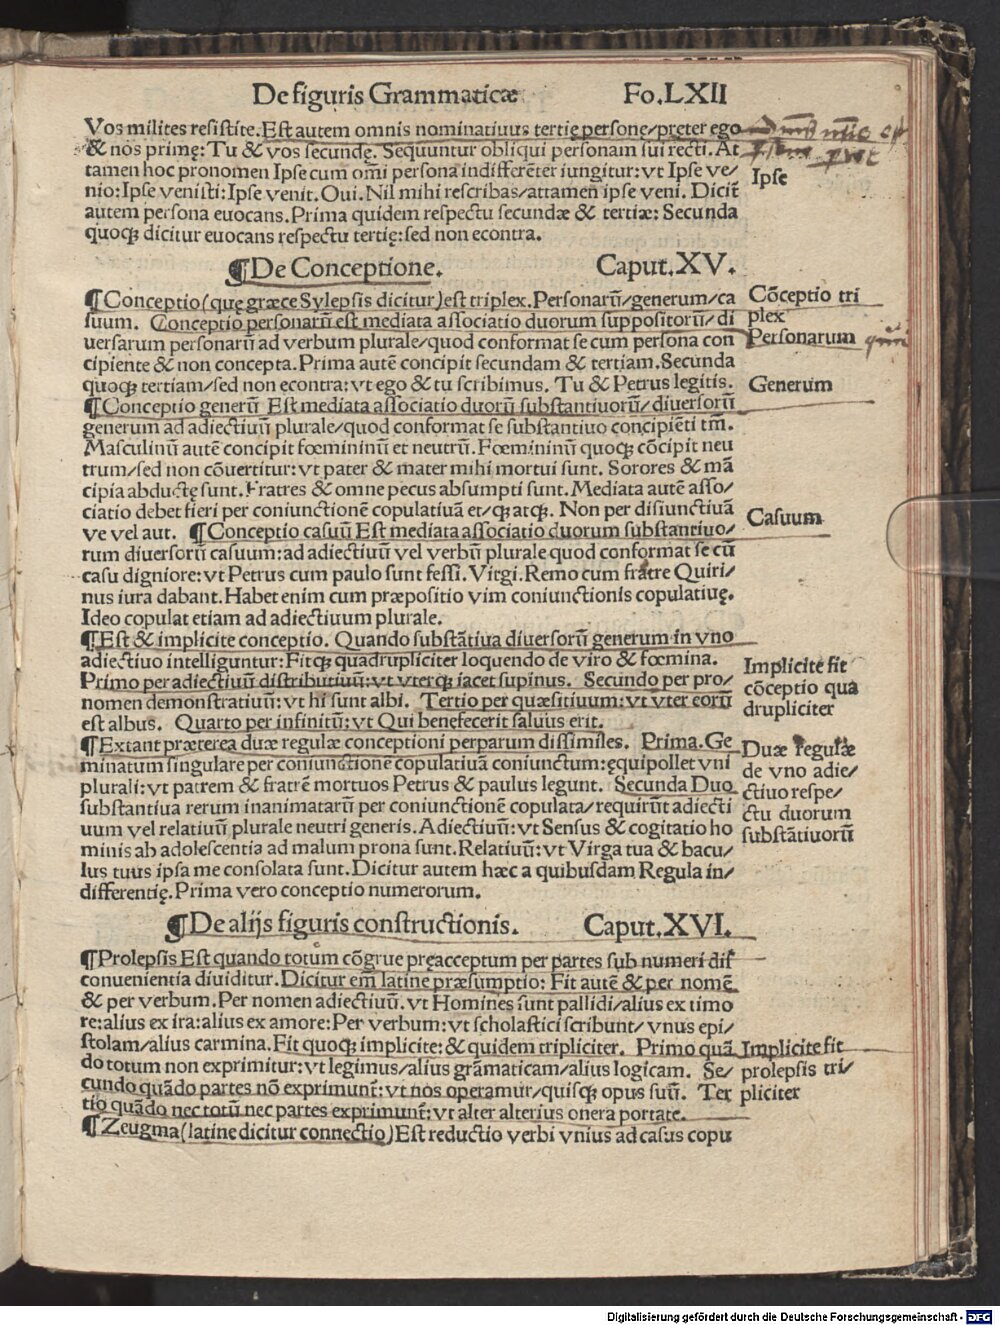 De figuris Grammaticæ Fo.LXII
Vos milites resistite.Est autem omnis nominatiuus tertię persone/preter ego
& nos primę: Tu & vos secundę. Sequuntur obliqui personam sui recti. At
tamen hoc pronomen Ipse cum om̄i persona indifferēter iungitur: vt Ipse ve/
nio: Ipse venisti: Ipse venit. Oui. Nil mihi rescribas/attamen ipse veni. Dicit̄
autem persona euocans. Prima quidem respectu secundæ & tertiæ: Secunda
quoqꝫ dicitur euocans respectu tertię: sed non econtra.
Ipse
¶De Conceptione. Caput.XV.
¶Conceptio(quę græce Sylepsis dicitur)est triplex. Personarū/generum/ca
suum. Conceptio personarū est mediata associatio duorum suppositorū/di
uersarum personarū ad verbum plurale/quod conformat se cum persona con
cipiente & non concepta. Prima autē concipit secundam & tertiam. Secunda
quoqꝫ tertiam/sed non econtra: vt ego & tu scribimus. Tu & Petrus legitis.
¶Conceptio generū Est mediata associatio duorū substantiuorū/diuersorū
generum ad adiectiuū plurale/quod conformat se substantiuo concipiēti tm̄.
Masculinū autē concipit fœmininū et neutrū. Fœmininū quoqꝫ cōcipit neu
trum/sed non cōuertitur: vt pater & mater mihi mortui sunt. Sorores & mā
cipia abductę sunt. Fratres & omne pecus absumpti sunt. Mediata autē asso/
ciatio debet fieri per coniunctionē copulatiuā et/qꝫ atqꝫ. Non per disiunctiuā
ve vel aut. ¶Conceptio casuū Est mediata associatio duorum substantiuo/
rum diuersorū casuum: ad adiectiuū vel verbū plurale quod conformat se cū
casu digniore: vt Petrus cum paulo sunt fessi. Virgi. Remo cum fratre Quiri/
nus iura dabant. Habet enim cum præpositio vim coniunctionis copulatiuę.
Ideo copulat etiam ad adiectiuum plurale.
Cōceptio tri
plex
Personarum
Generum
Casuum
¶Est & implicite conceptio. Quando substātiua diuersorū generum in vno
adiectiuo intelliguntur: Fitqꝫ quadrupliciter loquendo de viro & fœmina.
Primo per adiectiuū distributiuū: vt vterqꝫ iacet supinus. Secundo per pro/
nomen demonstratiuū: vt hi sunt albi. Tertio per quæsitiuum: vt vter eorū
est albus. Quarto per infinitū: vt Qui benefecerit saluus erit.
Implicite fit
cōceptio qua
drupliciter
¶Extant præterea duæ regulæ conceptioni perparum dissimiles. Prima. Ge
minatum singulare per coniunctionē copulatiuā coniunctum: ęquipollet vni
plurali: vt patrem & fratrē mortuos Petrus & paulus legunt. Secunda Duo
substantiua rerum inanimatarū per coniunctionē copulata/requirūt adiecti
uum vel relatiuū plurale neutri generis. Adiectiuū: vt Sensus & cogitatio ho
minis ab adolescentia ad malum prona sunt. Relatiuū: vt Virga tua & bacu/
lus tuus ipsa me consolata sunt. Dicitur autem hæc a quibusdam Regula in/
differentię. Prima vero conceptio numerorum.
Duæ regulæ
de vno adie/
ctiuo respe/
ctu duorum
substātiuorū
¶De alijs figuris constructionis. Caput.XVI.
¶Prolepsis Est quando totum cōgrue pręacceptum per partes sub numeri dis
conuenientia diuiditur. Dicitur em̄ latine præsumptio: Fit autē & per nomē
& per verbum. Per nomen adiectiuū. vt Homines sunt pallidi/alius ex timo
re: alius ex ira: alius ex amore: Per verbum: vt scholastici scribunt/vnus epi/
stolam/alius carmina. Fit quoqꝫ implicite: & quidem tripliciter. Primo quā
do totum non exprimitur: vt legimus/alius grāmaticam/alius logicam. Se/
cundo quādo partes nō exprimunt̄: vt nos operamur/quisqꝫ opus suū. Ter
tio quādo nec totū nec partes exprimunt̄: vt alter alterius onera portate.
Implicite fit
prolepsis tri/
pliciter
¶Zeugma(latine dicitur connectio)Est reductio verbi vnius ad casus copu
Digitalisierung gefördert durch die Deutsche Forschungsgemeinschaft - DFG